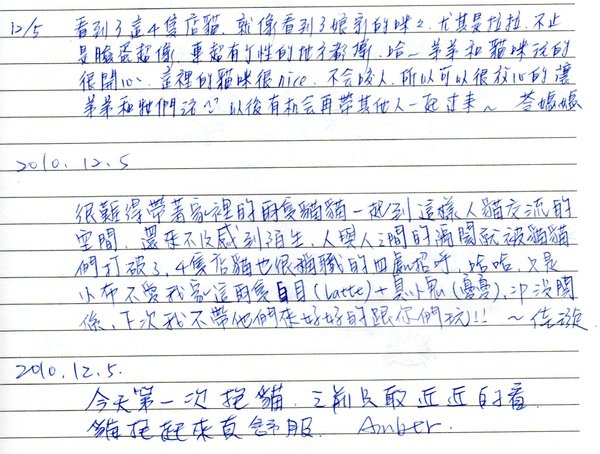 12/5 看到了這4隻店貓,就像看到了娘家的咪々,尤其是拉拉,不止
是臉蛋超像,連超有個性的地方都像,哈~ 羊羊和貓咪玩的
很開心,這裡的貓咪很nice,不会咬人,所以可以很放心的讓
羊羊和牠們玩 以後有机会再帶其他人一起过来~ 荅媽媽
2010.12.5
很難得帶著家裡的兩隻貓貓一起到這樣人貓交流的
空間,還來不及感到陌生,人與人之間的隔閡就被貓貓
們打破了,4隻店貓也很稱職的四處招呼,哈哈,只是
小布不愛我家這兩隻白目(Latte)+臭小鬼(憂憂),沒關
係,下次我不帶他們來好好的跟你們玩!! ~佳
2010.12.5.
今天第一次抱貓,之前只敢近近的看.
貓抱起來真舒服. Amber.